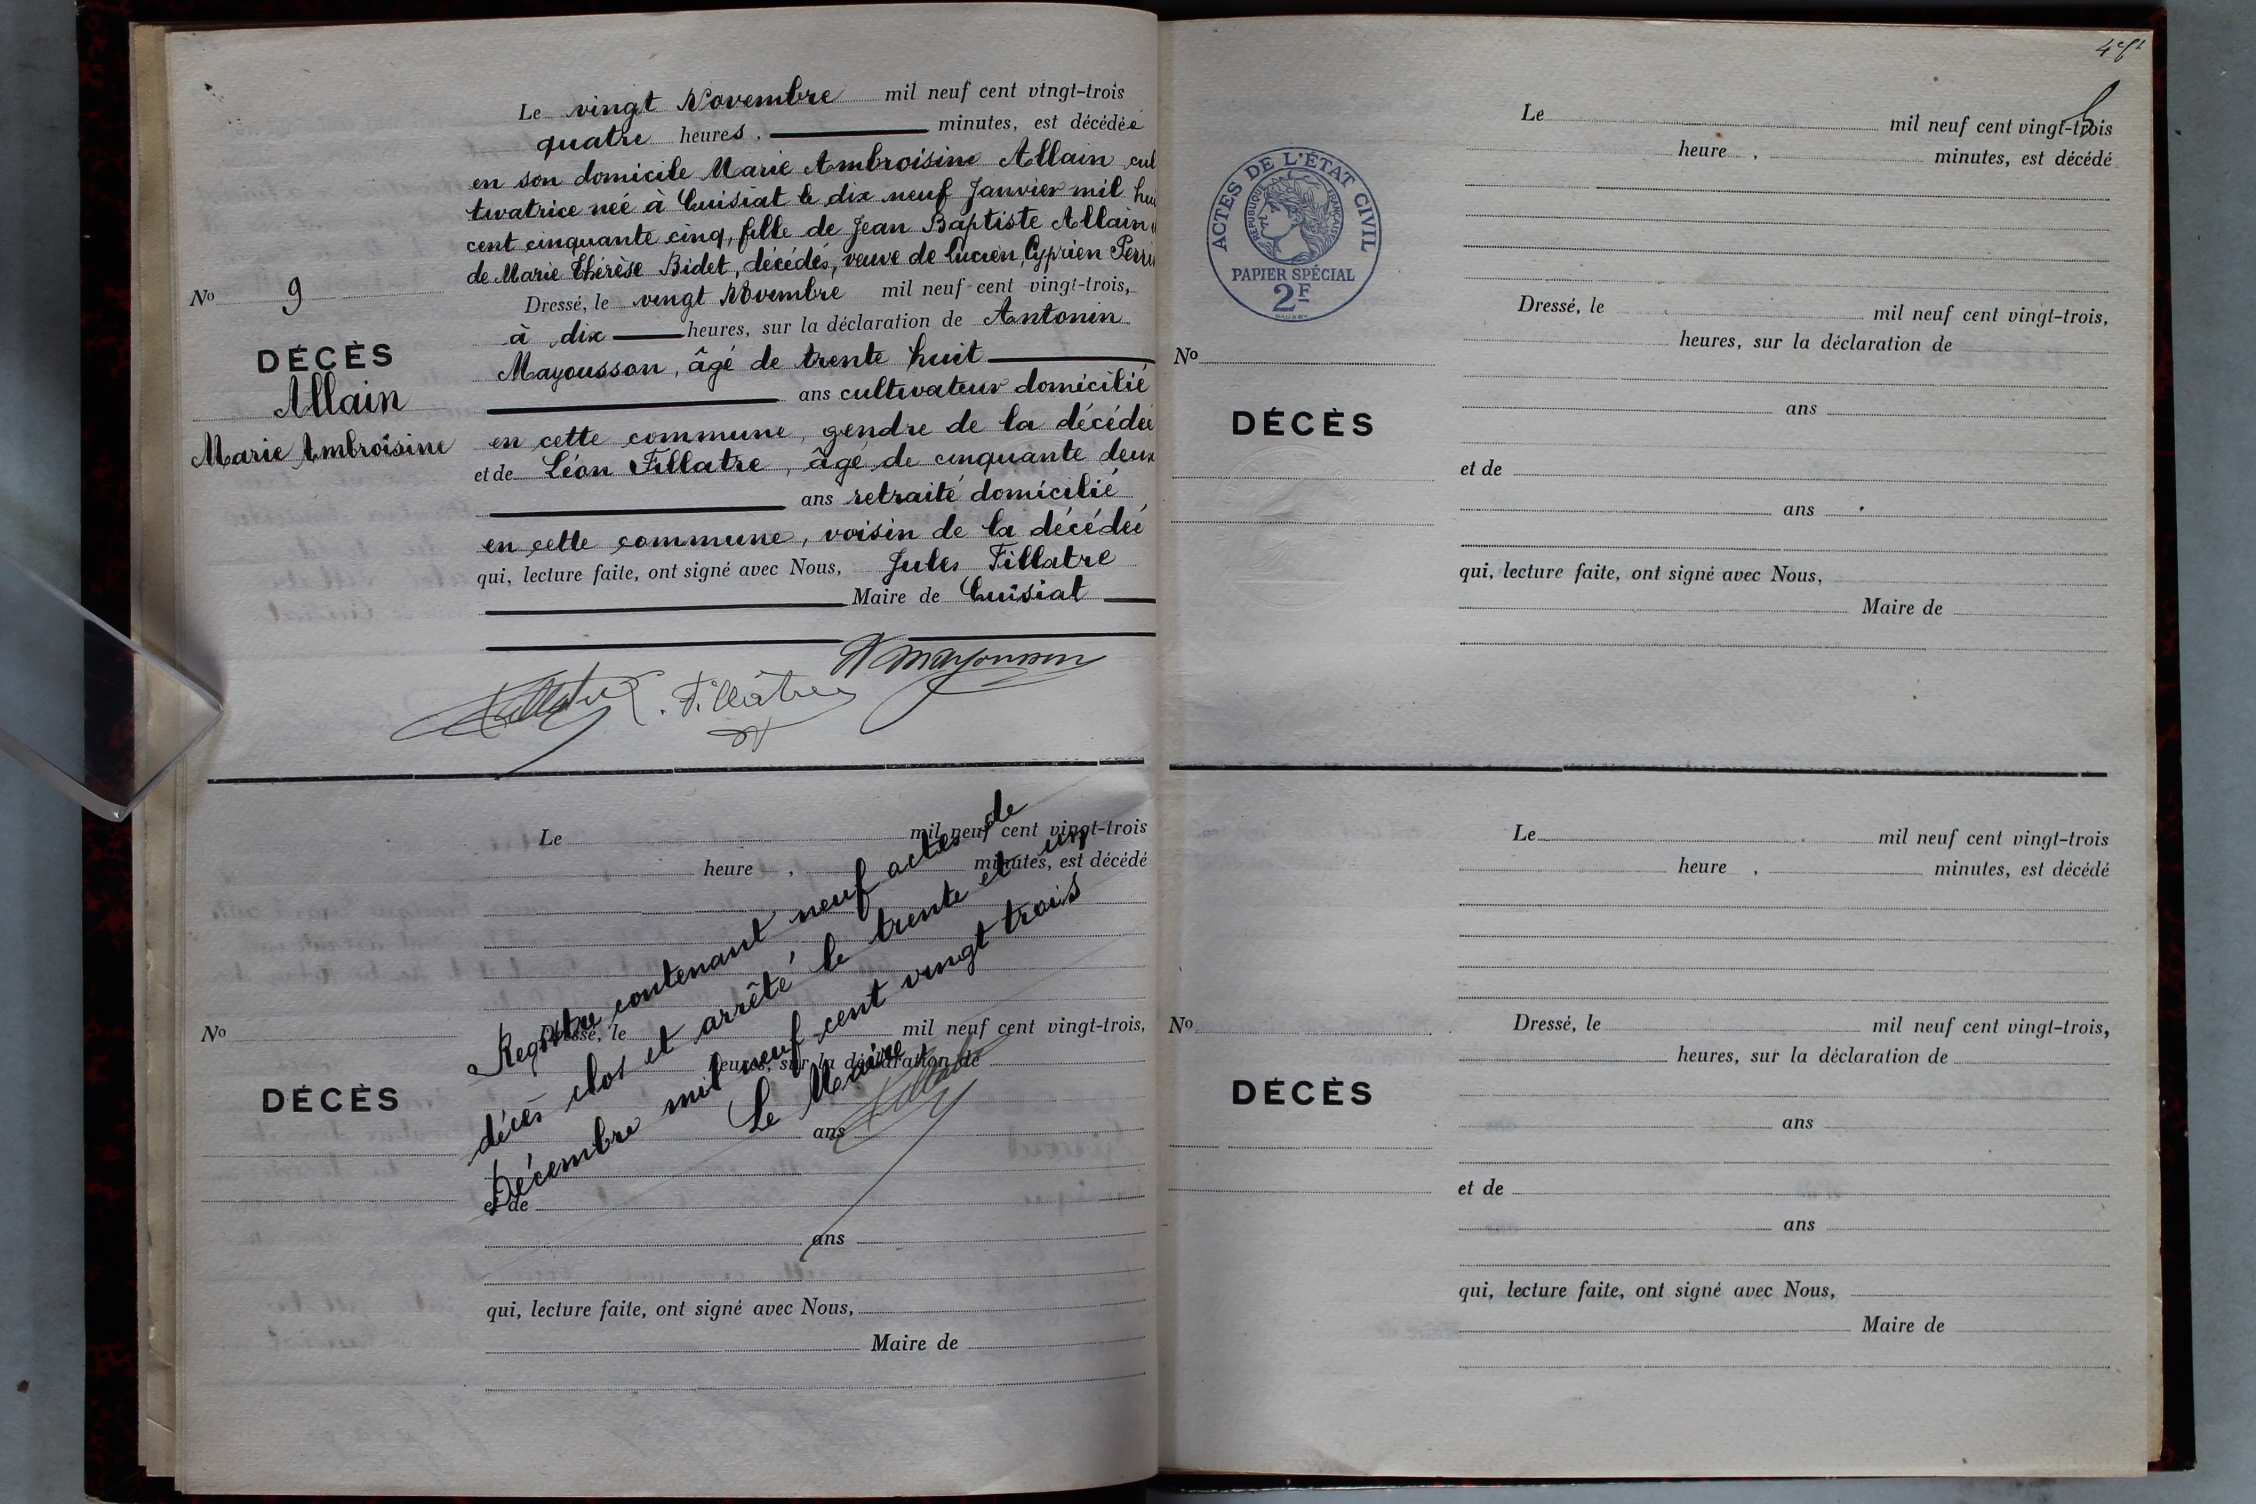 Le vingt Novembre mil neuf cent vingt-trois
quatre heures, minutes, est décédée
en son domicile Marie Ambroisine Allain cul
tivatrice neé à Cuisiat le dix neuf Janvier mil hui
cent cinquante cinq, fille de Jean Baptiste Allain
de Marie Thérèse Bidet, décédés, veuve de Lucien, Cyprien Perri
No 9
Dressé, le vingt Novembre mil neuf cent vingt-trois,
à dix heures, sur la déclaration de Antonin
DÉCÈS
Mayousson, âgé de trente huit
Allain
ans cultivateur domicilié
Marie Ambroisine
en cette commune, gendre de la décédée
et de Léon Fillatre, âgé de cinquante deux
ans retraité domicilié
en cette commune, voisin de la décédeé
qui, lecture faite, ont signé avec Nous, Jules Fillatre
Maire de Cuisiat
A Mayousson
Fillatre L. Fillâtre
Le mil neuf cent vingt-trois
heure , minutes, est décédé
No
Dressé, le mil neuf cent vingt-trois,
heures, sur la déclaration de
DÉCÈS
ans
et de
ans
qui, lecture faite, ont signé avec Nous,
Maire de
Registre contenant neuf actes de
décès clos et arrêté le trente et un
Décembre mil neuf cent vingt trois
Le Maire
Fillatre
ACTES DE L'ÉTAT CIVIL
RÉPUBLIQUE FRANÇAISE
PAPIER SPÉCIAL
2F
Le mil neuf cent vingt-trois
heure , minutes, est décédé
Dressé, le mil neuf cent vingt-trois,
heures, sur la déclaration de
No
DÉCÈS
ans
et de
ans
qui, lecture faite, ont signé avec Nous,
Maire de
Le mil neuf cent vingt-trois
heure , minutes, est décédé
No
Dressé, le mil neuf cent vingt-trois,
heures, sur la déclaration de
DÉCÈS
ans
et de
ans
qui, lecture faite, ont signé avec Nous,
Maire de